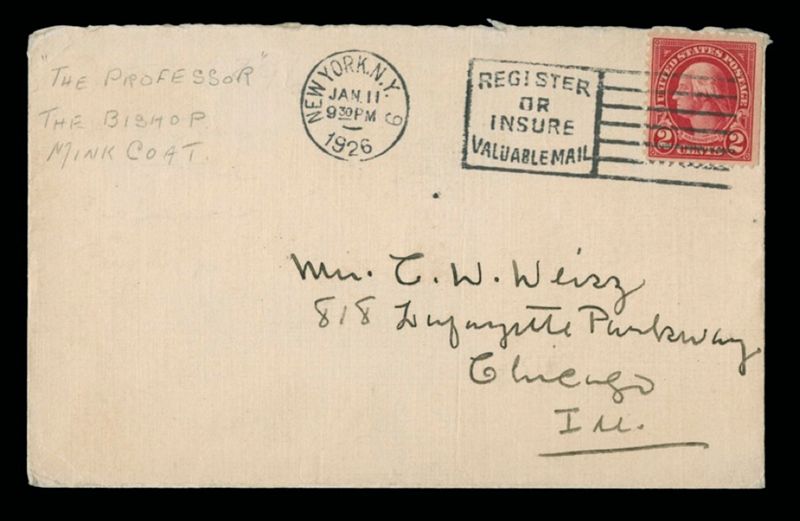 "THE PROFESSOR"
THE BISHOP
MINK COAT.
NEW YORK, N.Y. 9
JAN. 11
9 30 PM
1926
REGISTER
OR
INSURE
VALUABLE MAIL
UNITED STATES POSTAGE
2 2
Mr. C. W. Weisz
818 Lafayette Parkway
Chicago
Ill.